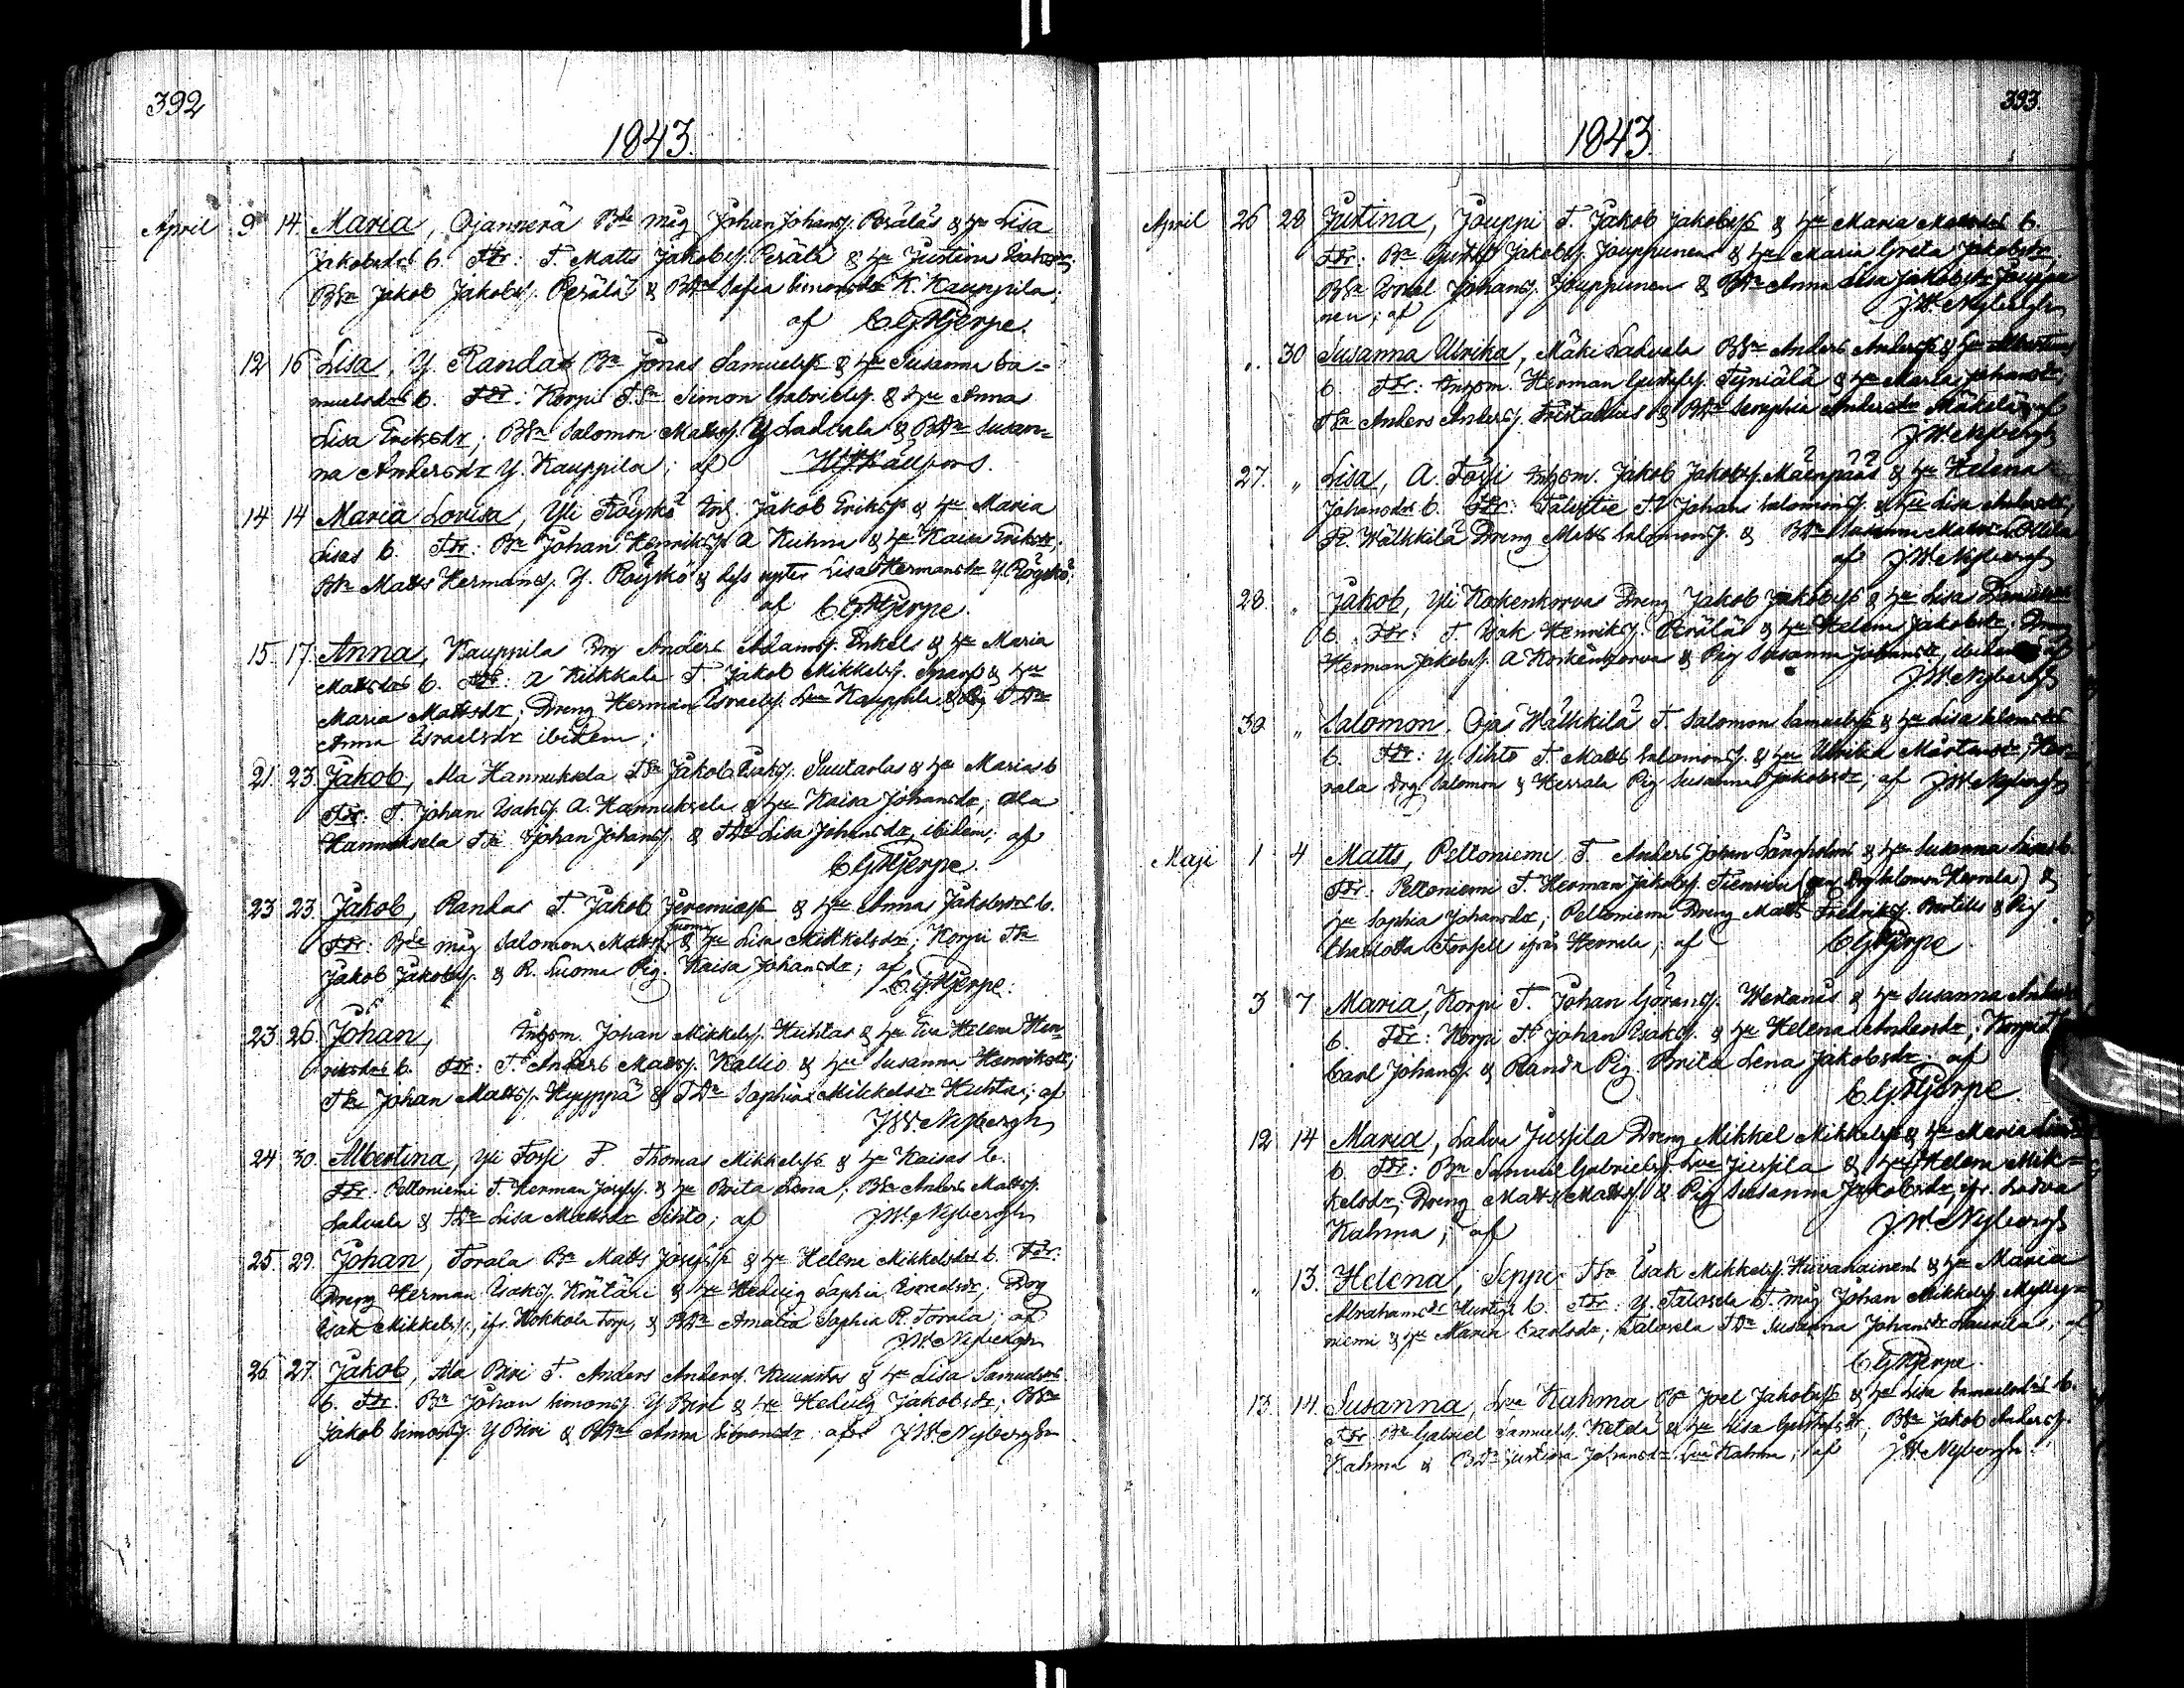 392
1843.
April 9 14. Maria, Ojannerä Bde måg Johan Johanss. Peräläs & hu Lisa
Jakobsdrs b. Fdr: T. Matts Jakobss. Perälä & hu Justina Isaksdr;
BSn Jakob Jakobss. Perälä & BDr Sofia Simonsdr K. Kauppila;
af C G Hjerpe.
12 16 Lisa, Y. Randas Bn Jonas Samuelss & hu Susanna Sa=
muelsdrs b. Fdr: Korpi T.Sn Simon Gabrielss. & hu Anna
Lisa Eriksdr; BSn Salomon Mattss. Y Ladvala & BDr Susan=
na Andersdr Y. Kauppila; af
14 14 Maria Lovisa, Yli Röyskö Inh. Jakob Erikss & hu Maria
Lisas b. Fdr: Bn Johan Henrikss. A Kuhna & hu Kaisa Eriksdr;
Bn Matts Hermanss. Y. Röyskö & dess syster Lisa Hermansdr Y. Röyskö;
af C G Hjerpe.
15. 17. Anna, Kauppila Drg Anders Adamss. Enkels & hu Maria
Mattsdrs b. Fdr: A Kukkala T. Jakob Mikkelss. & hu
Maria Mattsdr; Dreng Herman Israelss. Lua Kauppila & Pig TDr
Anna Israelsdr ibidem;
21. 23. Jakob, Ala Hannuksela TSn Jakob Isakss. Suutarlas & hu Marias b
Fdr: T. Johan Isakss. A. Hannuksela & hu Kaisa Johansdr; Ala
Hannuksela TSn Johan Johanss. & TDr Lisa Johansdr, ibidem; af
C G Hjerpe.
23 23. Jakob, Randas T. Jakob Jeremiass & hu Anna Jakobsdrs b.
Fdr: Bde måg Salomon Mattss. Luoma & hu Lisa Mikkelsdr; Korpi TSn
Jakob Jakobss. & R. Luoma Pig. Kaisa Johansdr; af
C G Hjerpe.
23 26. Johan, Inhsm. Johan Mikkelss. Huhtas & hu Eva Helena Hen=
riksdrs b. Fdr: T. Anders Mattss. Kallio & hu Susanna Henriksdr;
TSn Johan Mattss. Hyyppä & TDr Sophia Mikkelsdr Huhta; af
J W Nybergh
24 30 Albertina, Yli Torsi T. Thomas Mikkelss & hu Kaisas b.
Fdr: Peltoniemi T. Herman Josefss. & hu Brita Lena; BSn Anders Mattss.
Ladvala & TDr Lisa Mattsdr Sihto; af J W. Nybergh
25. 29. Johan, Torala Bn Matts Josefss & hu Helena Mikkelsdrs b. Fdr:
Dreng Herman Isakss. Köntäri & hu Hedvig Sophia Israelsdr; Drg
Isak Mikkelss., ifr. Hokkola Torp, & BDr Amalia Sophia R. Torala; af
J W. Nybergh
26. 27. Jakob, Ala Biri T. Anders Anderss. Kuunstos & hu Lisa Samuelsdrs
b. Fdr: Bn Johan Simonss. Y Biri & hu Hedvig Jakobsdr; BSn
Jakob Simonss. Y Biri & BDr Anna Simonsdr; af J W. Nybergh
393
1843.
April 26 28 Justina, Jouppi T. Jakob Jakobss & hu Maria Mattsdrs b.
Fdr: Bn Gustaf Jakobss. Jouppunen & hu Maria Greta Jakobsdr;
BSn Johanss. Jouppunen & BDr Anna Lisa Jakobsdr Jouppu
nen; af J W. Nybergh
„ 30 Susanna Ulrika, Mäki Ladvala BSn Anders Anderss & hu Albertinas
b. Fdr: Inhsm. Herman Gustafss. Tyniälä & hu Maria Johansdr;
TSn Anders Anderss. & BDr Sophia Andersdr Mäkelä; af
J W. Nybergh
27. „ Lisa, A. Torsi Inhsm. Jakob Jakobss. Mäenpääs & hu Helena
Johansdrs b. Fdr: Talvitie T. Johans Salomonss. & hu Lisa Andersdr;
R. Wälkkilä Dreng Matts Salomonss. & BDr Susanna Mattsdr
af J W. Nybergh
28. „ Jakob, Yli Koskenkorvas Dreng Jakob Jakobss & hu Lisa
b. Fdr: T. Isak Henrikss. Perälä & hu Helena Jakobsdr; Dreng
Herman Jakobss. A Koskenkorva & Pig Susanna Johansdr, ibidem; af
J W. Nybergh
30 „ Salomon, Oja Wälkkilä T. Salomon Samuelss & hu Lisa Salomonsdrs
b. Fdr: Y. Sihto T. Matts Salomonss. & hu Ulrika Mårtensdr; Her=
rala Drg Salomon & Herrala Pig Susanna Jakobsdr; af J W. Nybergh
Maji 1 4 Matts, Peltoniemi T. Anders Johan Långholms & hu Susanna b.
Fdr: Peltoniemi T. Herman Jakobss. Tiensuu (gen Drg Salomon Herrala) &
hu Sophia Johansdr; Peltoniemi Dreng Matts Fredrikss. Bertills & Pig
Charlotta Forsell ifrån Herrala; af C G Hjerpe
3 7 Maria, Korpi T. Johan Göranss. Wertanäs & hu Susanna Anders
b. Fdr: Korpi T. Johan Isakss. & hu Helena Andersdr; Korpi
Carl Johanss. & Randa Pig. Brita Lena Jakobsdr; af
C G Hjerpe.
12 14 Maria, Ladva Jussila Dreng Mikkel Mikkelss & hu Maria
b. Fdr: Bn Samuel Gabrielss. Lva Jussila & hu Helena Mik=
kelsdr; Dreng Matts Mattss. & Pig Susanna Jakobsdr, ifr. Ladva
Kahma; af J W. Nybergh
„ 13. Helena, Seppi TSn Isak Mikkelss. Hiivanainens & hu Maria
Abrahamsdr Hurtigs b. Fdr: Y. Talosela T. måg Johan Mikkelss. Mylly=
niemi & hu Maria Carlsdr; Talosela TDr Susanna Johansdr Laurila; af
C G Hjerpe.
13. 14. Susanna, Lva Kahma Bn Joel Jakobss & hu Lisa Samuelsdrs b.
Fdr: Bn Gabriel Samuelss. Ketola & hu Lisa Gustafsdr; BSn Jakob Anderss.
Kahma & BDr Justina Johansdr Lva Kahma; af J W. Nybergh